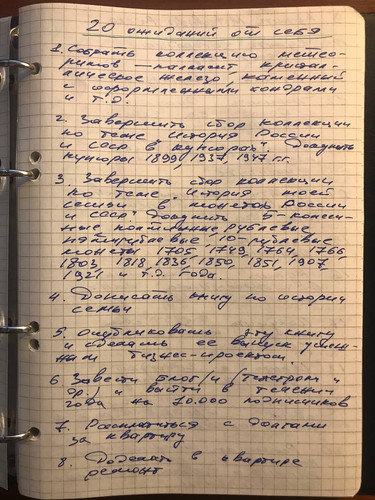 20 ожиданий от себя
1. Собрать коллекцию метео-
ритов — палласит, кристал-
лическое железо, каменный
с оформленными хондрами
и т.д.
2. Завершить сбор коллекции
по теме История России
и СССР в "купюрах". Докупить
купюры 1899, 1937, 1947 г.г.
3. Завершить сбор коллекции
по теме "История моей
семьи в монетах России
и СССР" Докупить 5-копееч-
ные, копеечные, рублевые
10-рублевые
монеты 1705, 1749, 1764, 1766,
1803, 1818, 1836, 1850, 1851, 1907,
1921 и т.д. года.
4. Дописать книгу по истории
семьи
5. Опубликовать эту книгу
и сделать ее выпуск успеш-
ным бизнес-проектом.
6 Завести блог/и (телеграм и
др.) и выйти в течении
года на 10.000 подписчиков
7. Расплатиться с долгами
за квартиру
8. Доделать в квартире
ремонт